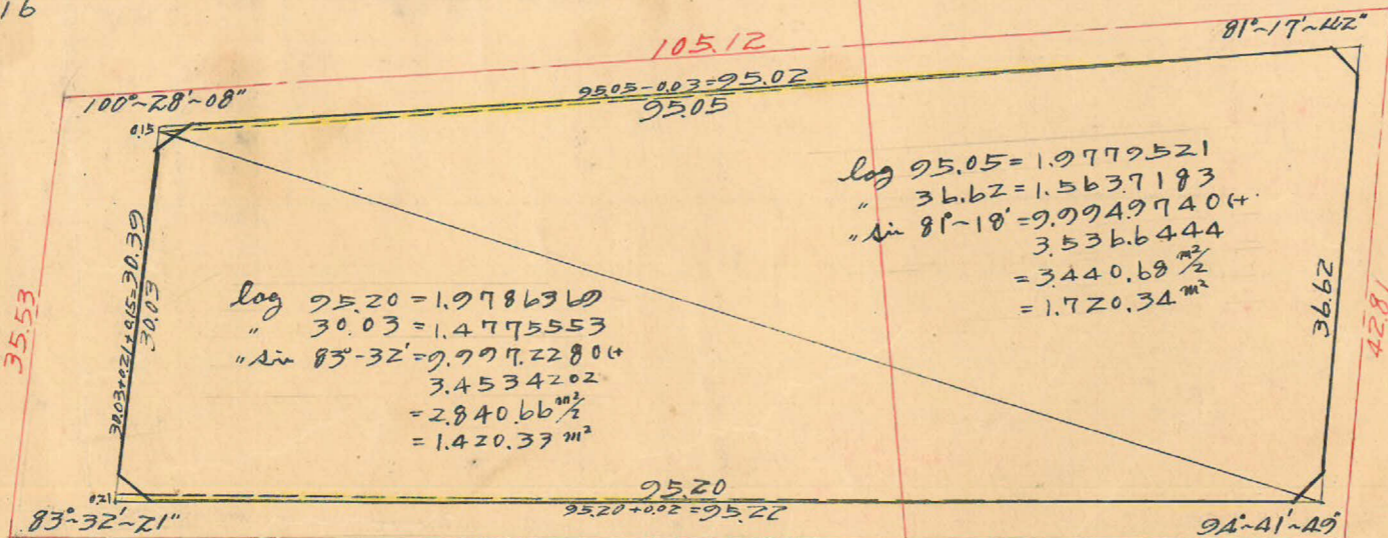 16
105.12
81°~17'~42"
100°~28'~08"
95.05-0.03=95.02
95.05
0.15
log 95.05=1.9779521
" 36.62=1.5637183
" sin 81°~18'=9.9949740(+
3.5366444
=3440.68 m²/2
=1.720.34 m²
30.03+0.21+0.15=30.39
30.03
35.53
log 95.20=1.9786369
" 30.03=1.4775553
" sin 83°-32'=9.997.2280(+
3.4534202
=2.840.66 m²/2
=1.420.33 m²
36.62
42.81
0.21
95.20
95.20+0.02=95.22
83°~32'~21"
94°~41'~49"